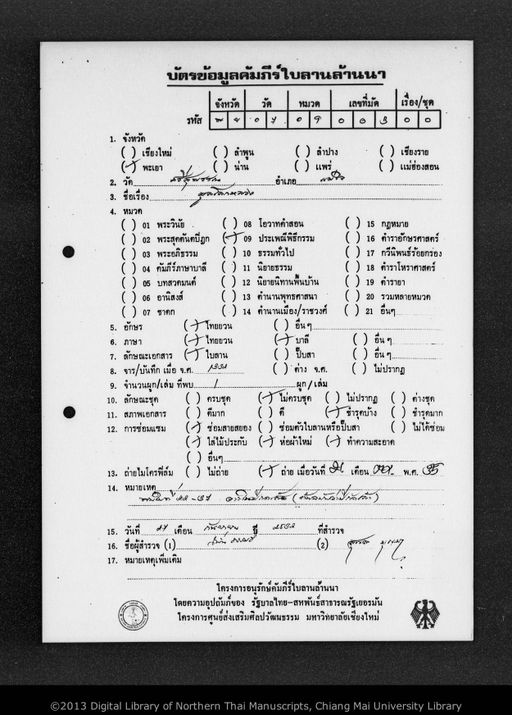 บัตรข้อมูลคัมภีร์ใบลานล้านนา
จังหวัด วัด หมวด เลขที่มัด เรื่อง/ชุด
รหัส
1. จังหวัด
( ) เชียงใหม่ ( ) ลำพูน ( ) ลำปาง ( ) เชียงราย
( ) พะเยา ( ) น่าน ( ) แพร่ ( ) แม่ฮ่องสอน
2. วัด อำเภอ
3. ชื่อเรื่อง
4. หมวด
( ) 01 พระวินัย ( ) 08 โอวาทคำสอน ( ) 15 กฎหมาย
( ) 02 พระสุตตันตปิฎก ( ) 09 ประเพณีพิธีกรรม ( ) 16 ตำราอักษรศาสตร์
( ) 03 พระอภิธรรม ( ) 10 ธรรมทั่วไป ( ) 17 กวีนิพนธ์ร้อยกรอง
( ) 04 คัมภีร์ภาษาบาลี ( ) 11 นิยายธรรม ( ) 18 ตำราโหราศาสตร์
( ) 05 บทสวดมนต์ ( ) 12 นิยายนิทานพื้นบ้าน ( ) 19 ตำรายา
( ) 06 อานิสงส์ ( ) 13 ตำนานพุทธศาสนา ( ) 20 รวมหลายหมวด
( ) 07 ชาดก ( ) 14 ตำนานเมือง/ราชวงศ์ ( ) 21 อื่นๆ
5. อักษร ( ) ไทยยวน ( ) อื่นๆ
6. ภาษา ( ) ไทยยวน ( ) บาลี ( ) อื่นๆ
7. ลักษณะเอกสาร ( ) ใบลาน ( ) ปั๊บสา ( ) อื่นๆ
8. จาร/บันทึก เมื่อ จ.ศ. ( ) ต่าง จ.ศ. ( ) ไม่ปรากฏ
9. จำนวนผูก/เล่ม ที่พบ 1 ผูก/เล่ม
10. ลักษณะชุด ( ) ครบชุด ( ) ไม่ครบชุด ( ) ไม่ปรากฏ ( ) ต่างชุด
11. สภาพเอกสาร ( ) ดีมาก ( ) ดี ( ) ชำรุดบ้าง ( ) ชำรุดมาก
12. การซ่อมแซม ( ) ซ่อมสายสยอง ( ) ซ่อมตัวใบลานหรือปั๊บสา ( ) ไม่ได้ซ่อม
( ) ใส่ไม้ประกับ ( ) ห่อผ้าใหม่ ( ) ทำความสะอาด
( ) อื่นๆ
13. ถ่ายไมโครฟิล์ม ( ) ไม่ถ่าย ( ) ถ่าย เมื่อวันที่ เดือน พ.ศ.
14. หมายเหตุ
15. วันที่ 27 เดือน กันยายน ปี 2532 ที่สำรวจ
16. ชื่อผู้สำรวจ (1) (2)
17. หมายเหตุเพิ่มเติม
โครงการอนุรักษ์คัมภีร์ใบลานล้านนา
โดยความอุปถัมภ์ของ รัฐบาลไทย-สหพันธ์สาธารณรัฐเยอรมัน
โครงการศูนย์ส่งเสริมศิลปวัฒนธรรม มหาวิทยาลัยเชียงใหม่
©2013 Digital Library of Northern Thai Manuscripts, Chiang Mai University Library